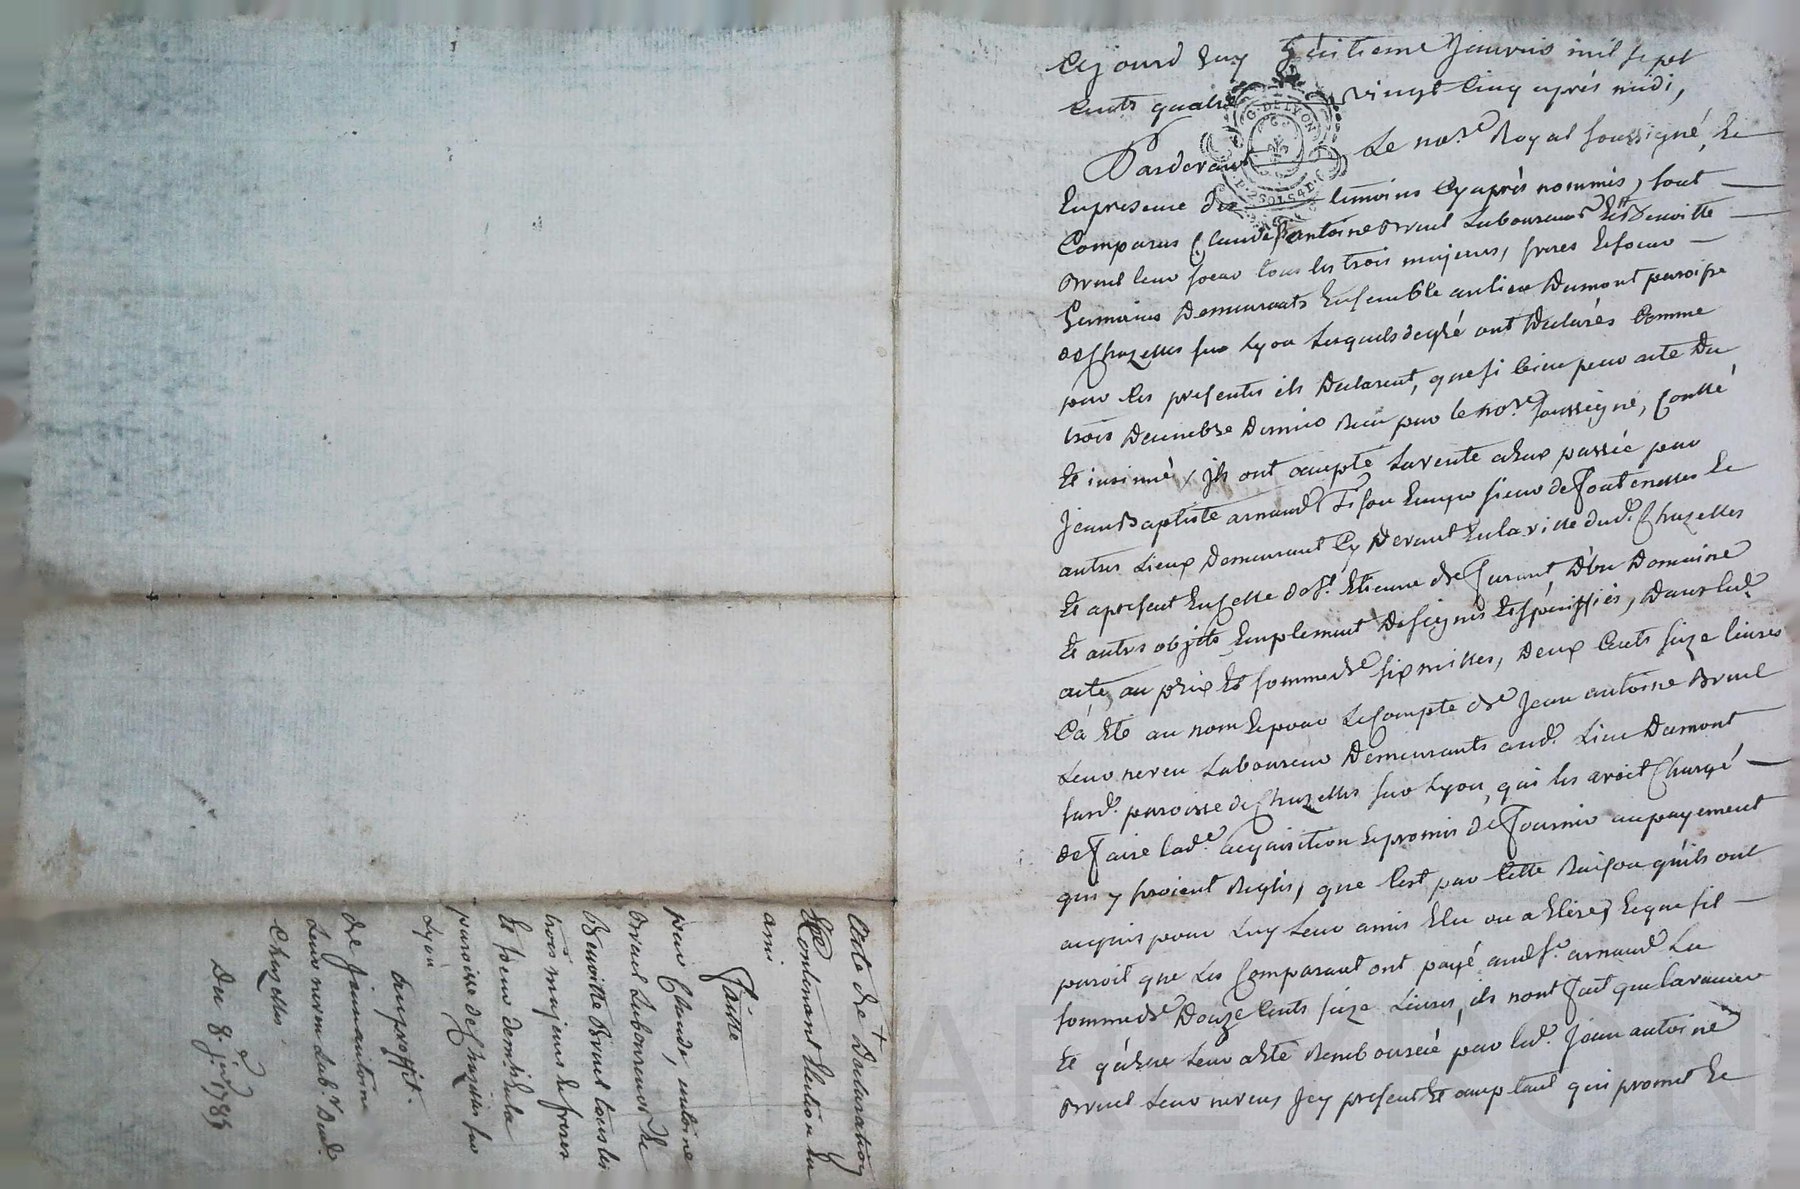 Cejourd huy huitieme Janvier mil sept
cents quatre vingt cinq après midi,
G. DE LYON
Pardevant Le no.re Royal soussigné, Et
En presence des temoins Cy après nommés, sont
Comparus Claude, antoine Bruel Laboureurs Et Benoitte
Bruel leur soeur tous les trois majeurs, freres Et soeur
Germains Demeurants Ensemble au lieu Dumont paroisse
de Chazelles sur Lyon Lesquels de gré ont Declarés Comme
par Ces presentes ils Declarent, que si bien par acte Du
trois Decembre Dernier Recu par le no.re soussigné, Conllé
Et insinué, ils ont accepté La vente a Eux passée par
Jean Baptiste arnaud Ecuyer sieur de Fontenelles Et
autres Lieux Demeurant Cy Devant En la ville dud. Chazelles
Et apresent En Celle de St. Etienne de furant, D'un Domaine
Et autres objets Emplement Designés Et spéciffiés, Dans led.
acte, au prix Et somme de six milles, Deux Cents seize livres
Ca Eté au nom Et pour Le Compte de Jean antoine Bruel
Leur neveu Laboureur Demeurants aud. Lieu Dumont
susd. paroisse de Chazelles sur Lyon, qui les avoit Chargé
de Faire lad.e acquisition Et promis de Fournir au payement
qui y seroient Reglés, que C'est par Cette Raison qu'ils ont
acquis pour Luy Leur amis Elu ou a Elire, Et que s'il
paroit que Les Comparant ont payé aud. Sr. arnaud La
somme de Douze Cents seize Livres, ils n'ont Fait que l'avance
Et qu'Elle Leur a Eté Remboursée par led. Jean antoine
Bruel Leur neveu Icy present Et acceptant qui promet Et
Acte de Declaration
Contenant Election En
ami
Faitte
par Claude, antoine
Bruel Laboureurs Et
Benoitte Bruel tous les
trois majeurs Et freres
Et soeur de
paroisse de Chazelles sur
Lyon
au proffit.
de Jean antoine
Leur neveu Lab.r Dud.
Chazelles.
Du 8. j.er 1785